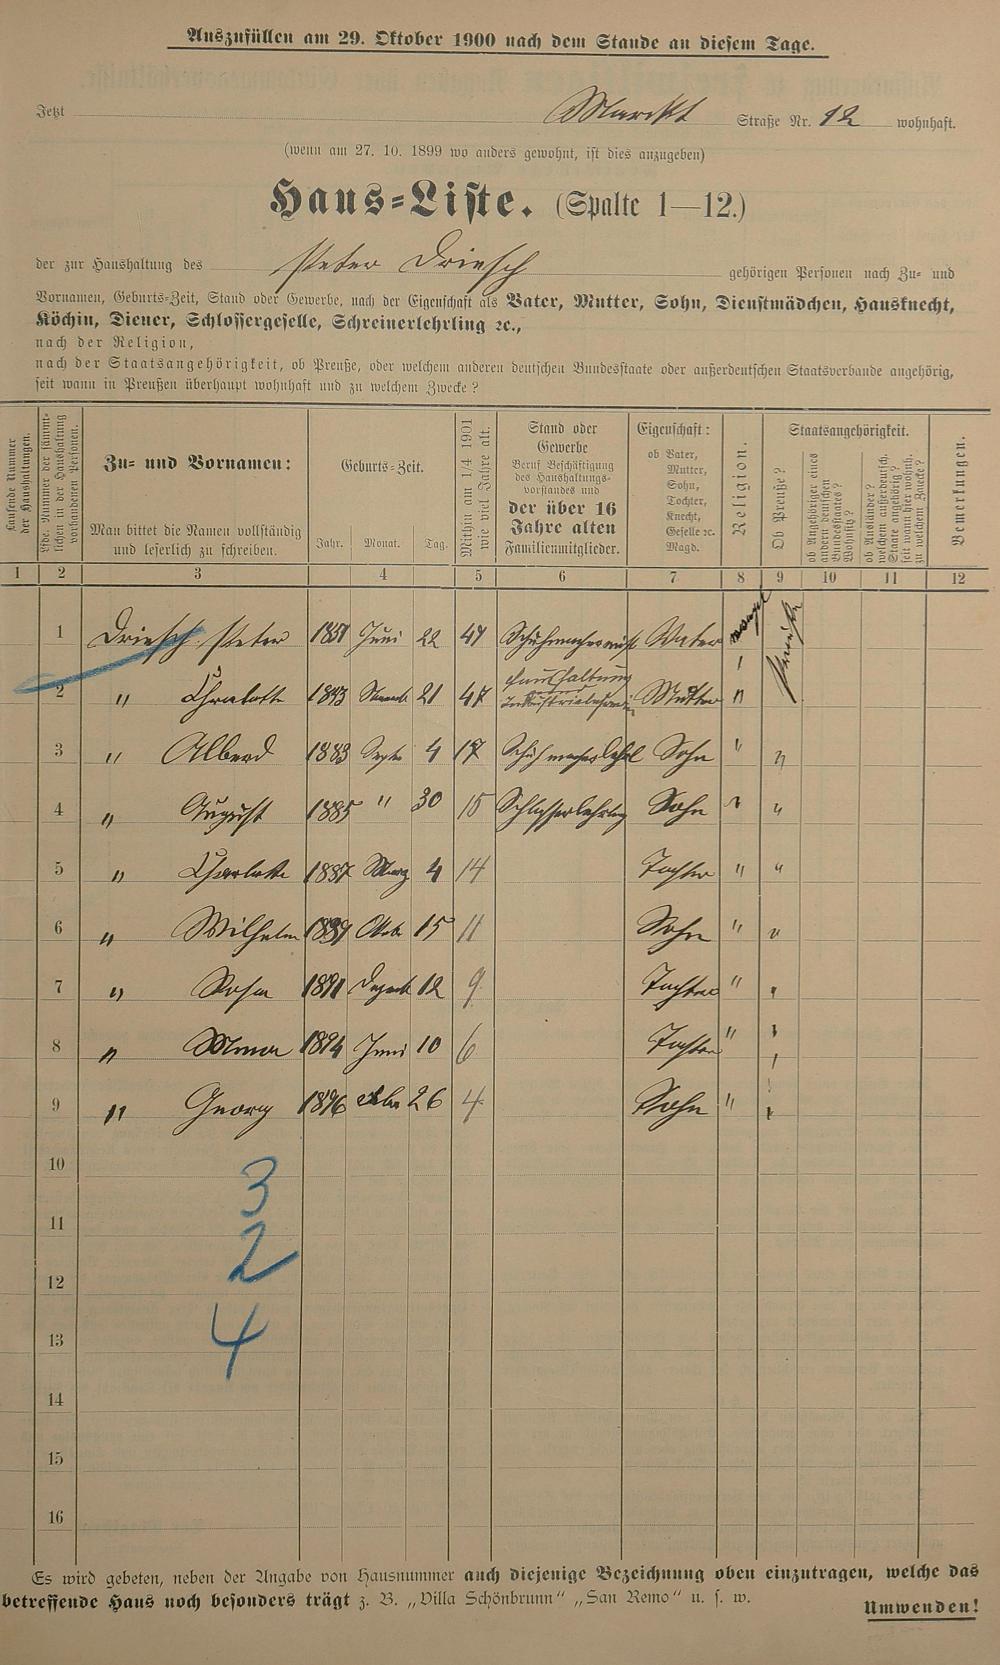 Auszufüllen am 29. Oktober 1900 nach dem Stande an diesem Tage.
Jetzt Markt Straße Nr. 12 wohnhaft.
(wenn am 27. 10. 1899 wo anders gewohnt, ist dies anzugeben)
Haus-Liste. (Spalte 1—12.)
der zur Haushaltung des Peter Driesch gehörigen Personen nach Zu- und
Vornamen, Geburts-Zeit, Stand oder Gewerbe, nach der Eigenschaft als Vater, Mutter, Sohn, Dienstmädchen, Hausknecht,
Köchin, Diener, Schlossergeselle, Schreinerlehrling ꝛc.,
nach der Religion,
nach der Staatsangehörigkeit, ob Preuße, oder welchem anderen deutschen Bundesstaate oder außerdeutschen Staatsverbande angehörig,
seit wann in Preußen überhaupt wohnhaft und zu welchem Zwecke?
Laufende Nummer der Haushaltungen.
Lfde. Nummer der sämmtlichen in der Haushaltung vorhandenen Personen.
Zu- und Vornamen:
Man bittet die Namen vollständig
und leserlich zu schreiben.
Geburts-Zeit.
Jahr. Monat. Tag.
Mithin am 1/4 1901 wie viel Jahre alt.
Stand oder
Gewerbe
Beruf Beschäftigung
des Haushaltungs-
vorstandes und
der über 16
Jahre alten
Familienmitglieder.
Eigenschaft:
ob Vater,
Mutter,
Sohn,
Tochter,
Knecht,
Geselle ꝛc.
Magd.
Religion.
Staatsangehörigkeit.
Ob Preuße?
ob Angehöriger eines andern deutschen Bundesstaates? Wohnsitz?
ob Ausländer? welchem außerdeutsch. Staate angehörig? seit wann hier wohnh. zu welchem Zwecke?
Bemerkungen.
1 2 3 4 5 6 7 8 9 10 11 12
1 Driesch Peter Juni 22 47 Schuhmachermist Vater
2 " 1853 21 47 Haushaltung Mutter "
3 " Alberd 1883 Septe 4 17 Schuhmacherlehrl Sohn " "
4 " August 1885 " 30 15 Schlosserlehrlng Sohn " "
5 " Charlotte 1887 Merz 4 14 Tochter " "
6 " Wilhelm 1889 Oktob 15 11 Sohn " "
7 " Rosa 1891 Dezemb 12 9 Tochter " "
8 " 1894 Juni 10 6 Tochter " "
9 " Georg 1896 26 4 Sohn " "
10
3
11
2
12
13
4
14
15
16
Es wird gebeten, neben der Angabe von Hausnummer auch diejenige Bezeichnung oben einzutragen, welche das
betreffende Haus noch besonders trägt z. B. „Villa Schönbrunn" „San Remo" u. s. w.
Umwenden!